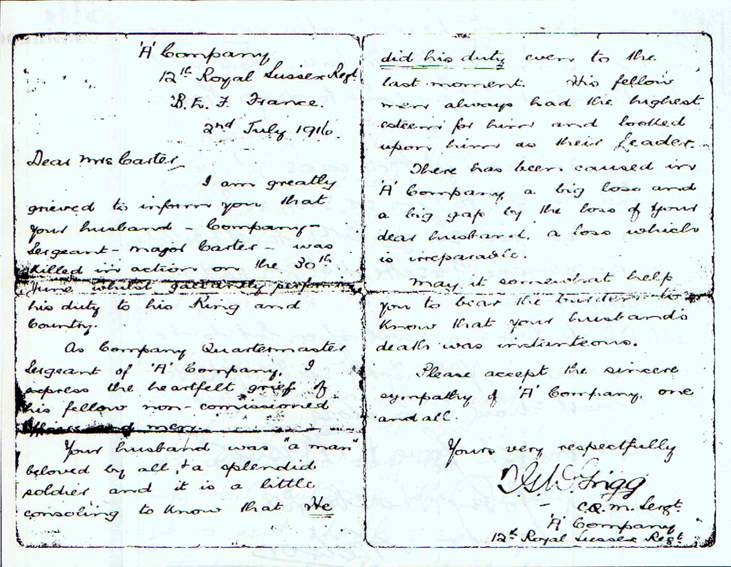 'A' Company
12th Royal Sussex Regt
B. E. F. France.
2nd July 1916.
Dear Mrs Carter,
I am greatly
grieved to inform you that
your husband - Company -
Sergeant - Major Carter - was
killed in action on the 30th
June whilst gallantly performing
his duty to his King and
Country.
As Company Quartermaster
Sergeant of 'A' Company, I
express the heartfelt grief of
his fellow non-comissioned
Officers and men.
Your husband was "a man"
beloved by all, & a splendid
soldier and it is a little
consoling to know that He
did his duty even to the
last moment. His fellow
men always had the highest
esteem for him and looked
upon him as their Leader.
There has been caused in
'A' Company a big loss and
a big gap by the loss of your
dear husband, a loss which
is irreparable.
May it somewhat help
you to bear the burden to
know that your husband's
death was instanteous.
Please accept the sincere
sympathy of 'A' Company, one
and all.
Yours very respectfully
Grigg
- C.Q.M. Sergt.
'A' Company
12th Royal Sussex Regt